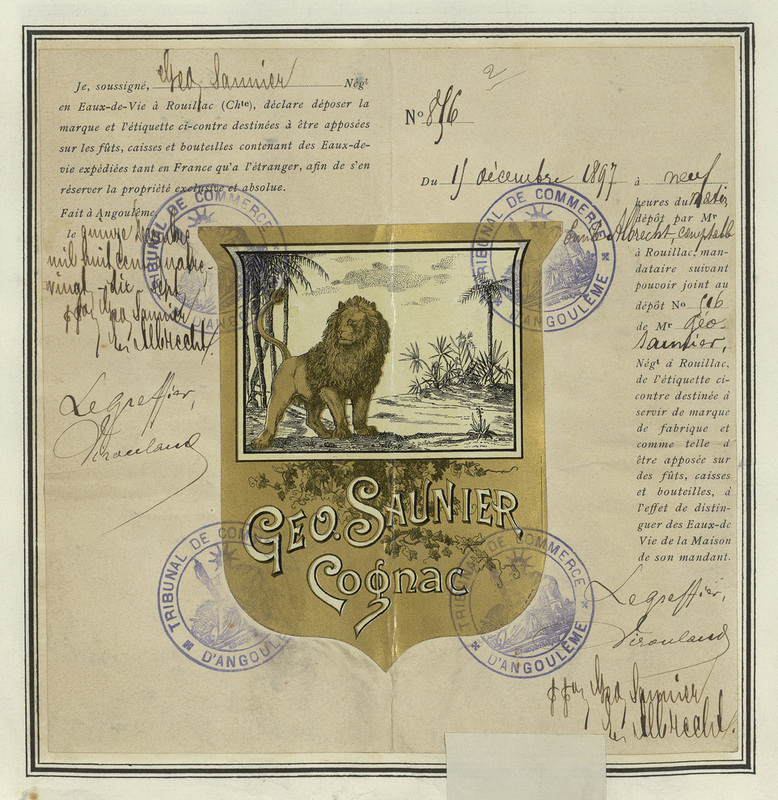 Je, soussigné, Geo Saunier Négt
en Eaux-de-Vie à Rouillac (Chte), déclare déposer la
marque et l'étiquette ci-contre destinées à être apposées
sur les fûts, caisses et bouteilles contenant des Eaux-de-
vie expédiées tant en France qu'a l'étranger, afin de s'en
réserver la propriété exclusive et absolue.
Fait à Angoulême,
le quinze Décembre
mil huit cent quatre-
vingt-dix-sept
ppon Geo Saunier
Albrecht
Le greffier,
Nº 856
Du 15 décembre 1897 à neuf
heures du matin
dépôt par Mr
Albrecht, comptable
à Rouillac, man-
dataire suivant
pouvoir joint au
dépôt No
de Mr Géo
Saunier,
Négt à Rouillac,
de l'étiquette ci-
contre destinée à
servir de marque
de fabrique et
comme telle d
être apposée sur
des fûts, caisses
et bouteilles, à
l'effet de distin-
guer des Eaux-de
Vie de la Maison
de son mandant.
Le greffier,
ppon Geo Saunier
Albrecht
GEO. SAUNIER
Cognac
TRIBUNAL DE COMMERCE
D'ANGOULÊME
TRIBUNAL DE COMMERCE
D'ANGOULÊME
TRIBUNAL DE COMMERCE
D'ANGOULÊME
TRIBUNAL DE COMMERCE
D'ANGOULÊME